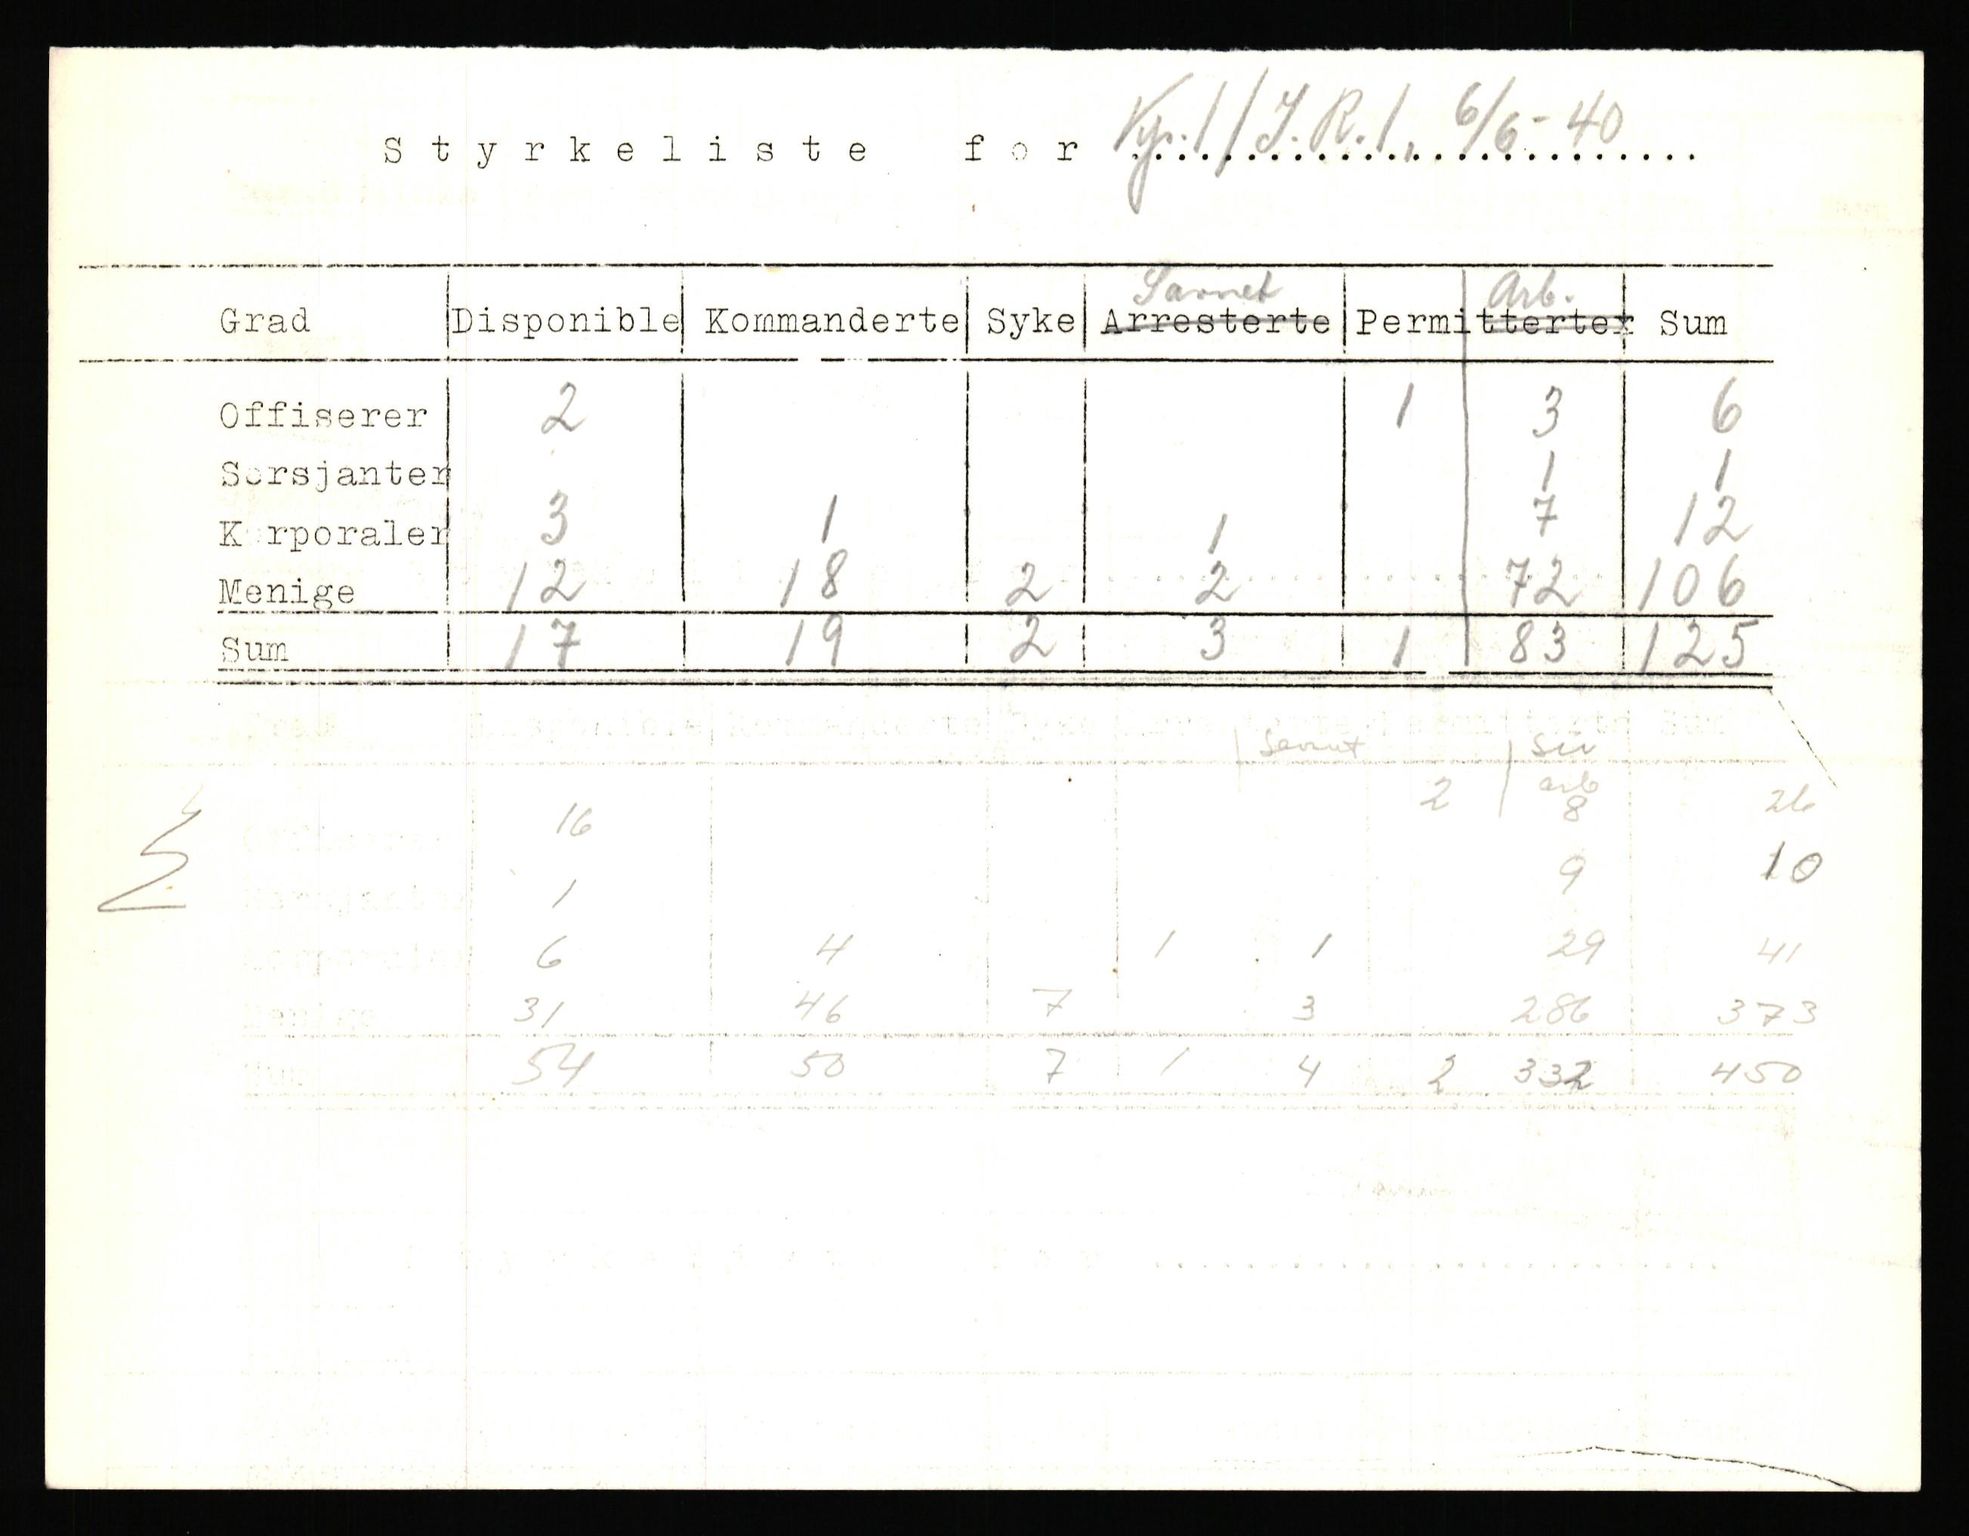 Styrkeliste for Kp. 1/I.R.1. 6/6-40
Savnet Arb.
Grad Disponible Kommanderte Syke Arresterte Permitterte Sum
Offiserer 2 1 3 6
Sersjanter 1 1
Korporaler 3 1 1 7 12
Menige 12 18 2 2 72 106
Sum 17 19 2 3 1 83 125
Savnet Siv
arb
16 2 8 26
1 9 10
6 4 1 1 29 41
31 46 7 3 286 373
54 50 7 1 4 2 332 450